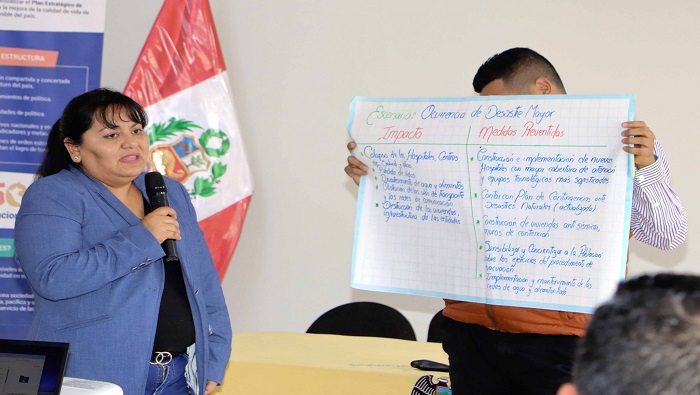 actualizar el Plan Estratégico de
la mejora de la calidad de vida de
nible del país.
ESTRUCTURA
ón compartida y concertada
uturo del país.
amientos de política.
dades de política.
vos nacionales y
dicadores y metas
Escenario: Ocurrencia de Desastre Mayor
Impacto
Medidas Preventivas
Colapso de los Hospitales, Centros
de Salud y
Pérdida de vidas
Desabastecimiento de agua y alimentos
vías de transporte
y las redes de comunicación.
Destrucción de las viviendas,
infraestructura de las entidades
Construcción e implementación de nuevos
Hospitales con mayor cobertura de atención
y equipos tecnológicos más sofisticados
Contar con Plan de Contingencias ante
Desastres Naturales (actualizado)
Construcción de viviendas anti sísmicas,
muros de contención
Sensibilizar y Concientizar a la Población
sobre los ejercicios del procedimiento de
evacuación
Implementación y mantenimiento de las
redes de agua y alcantarillado